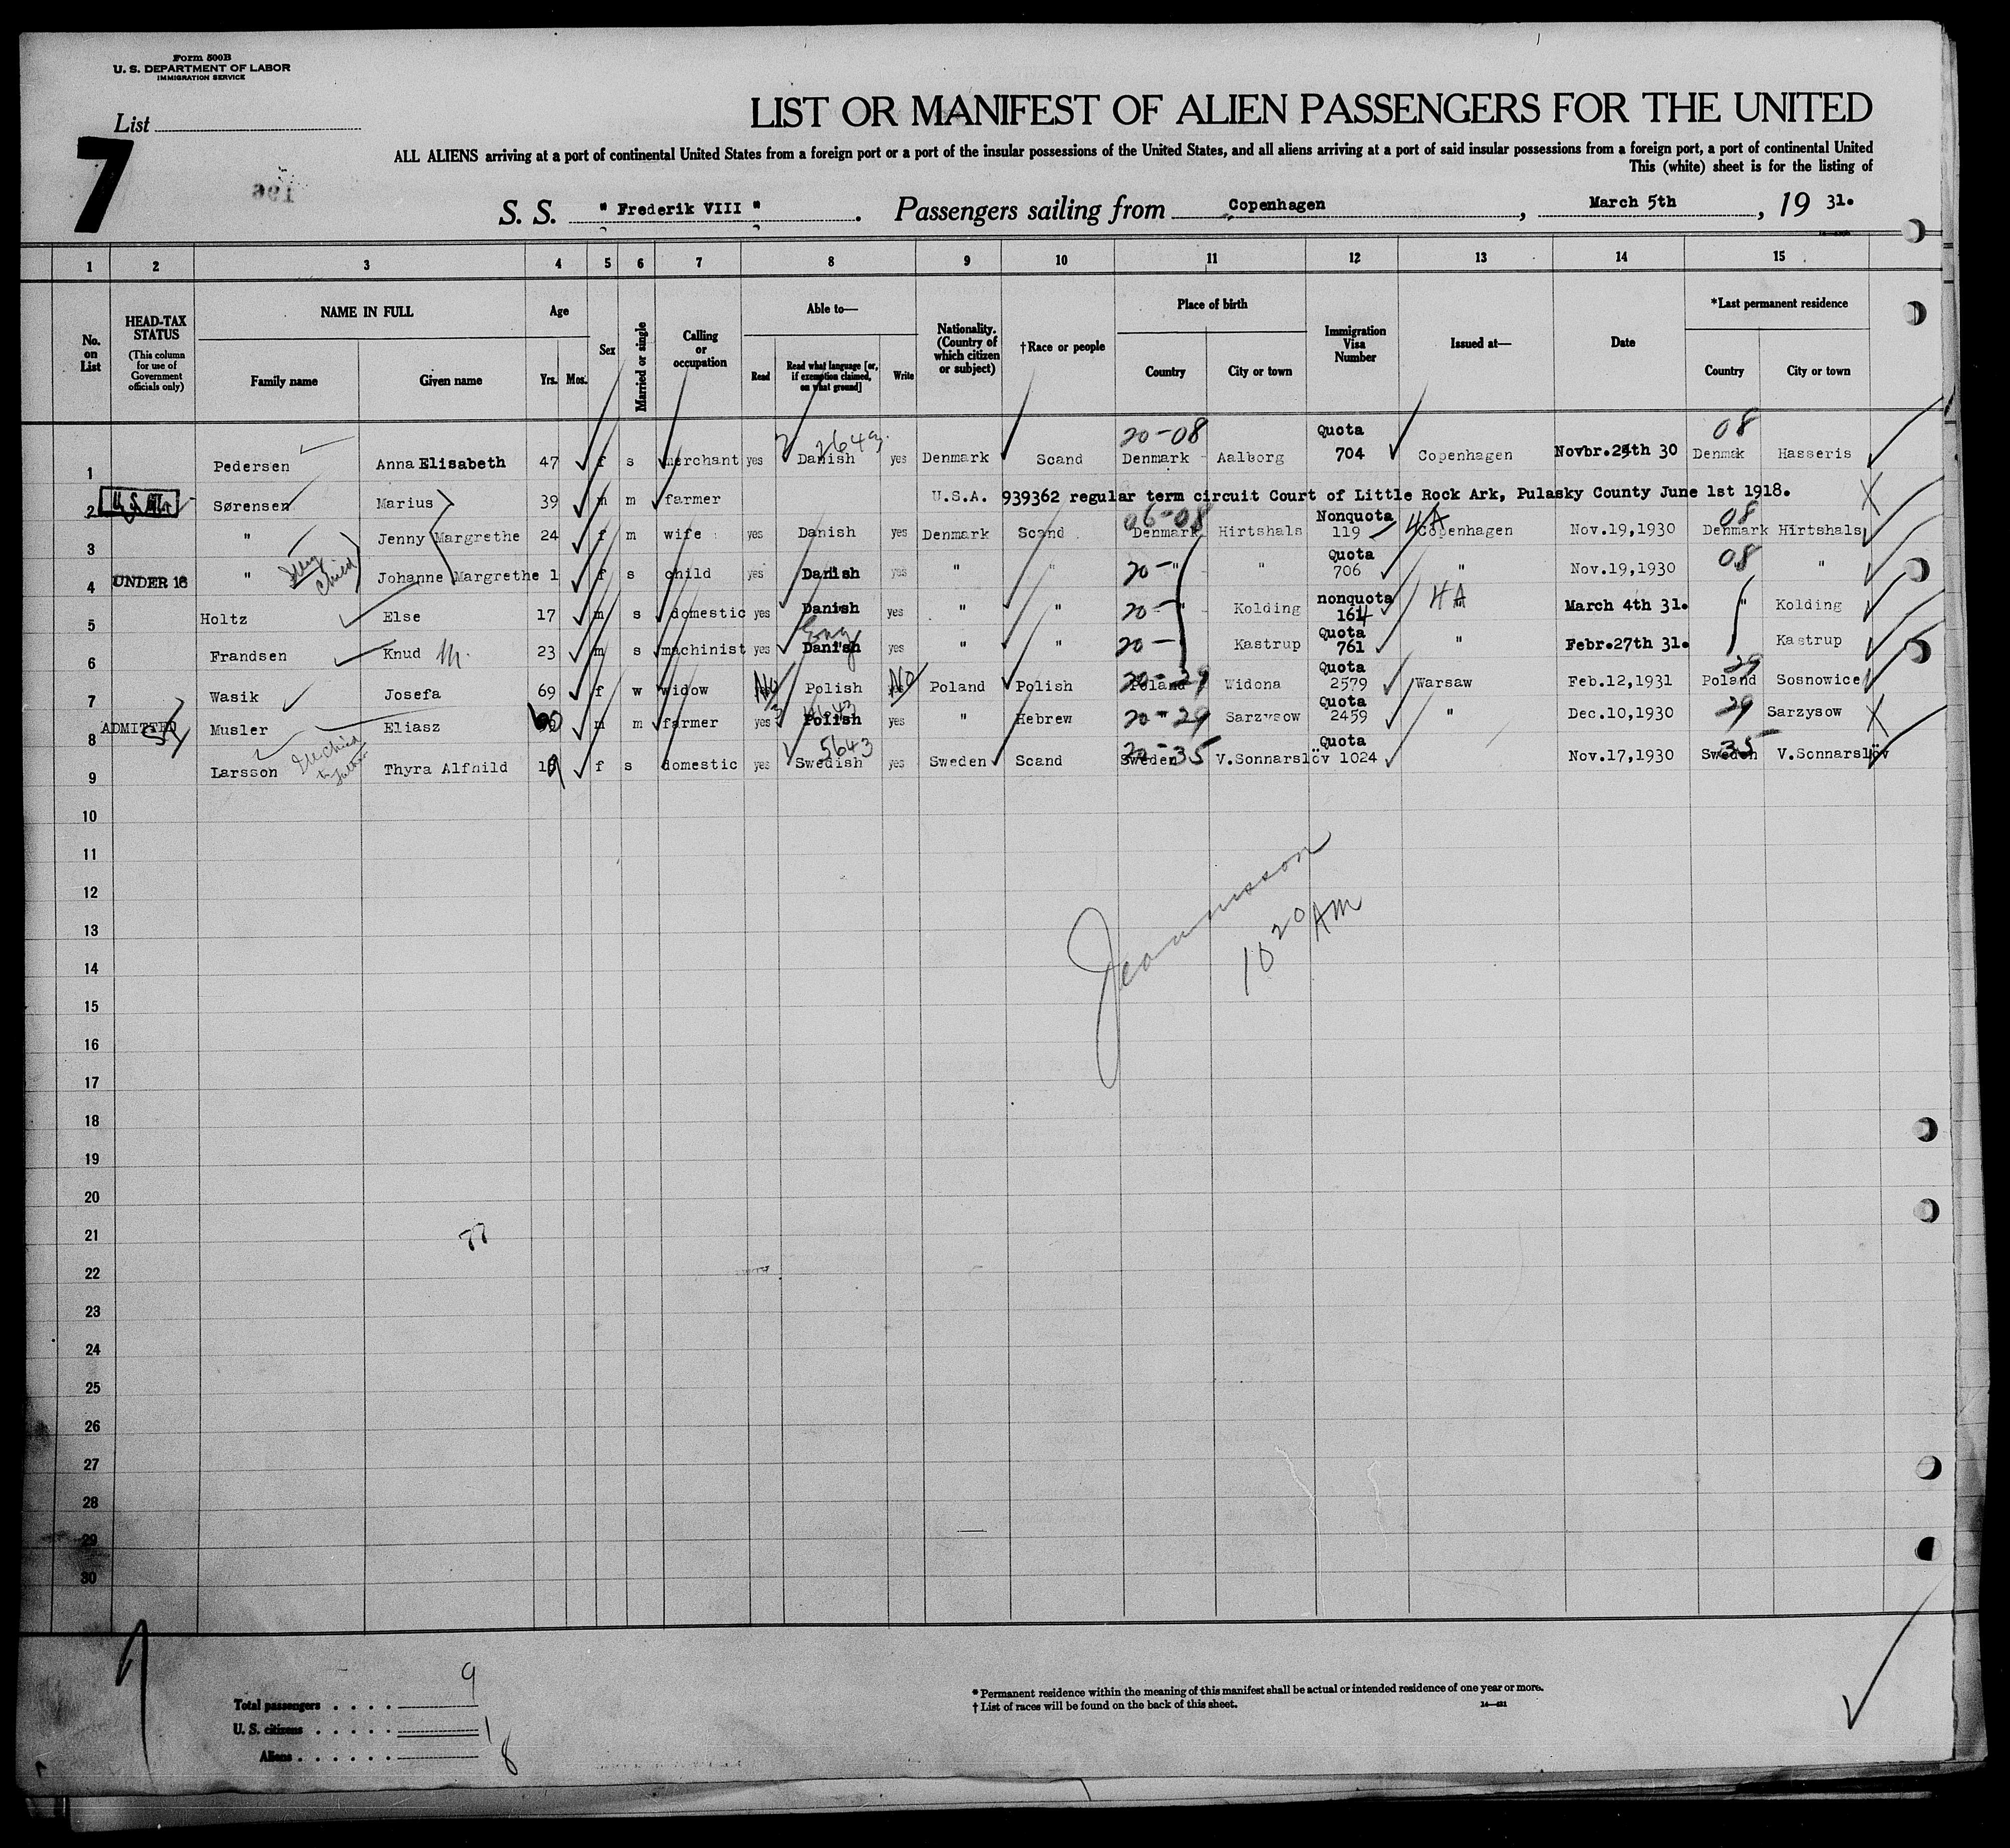 Form 500B
U. S. DEPARTMENT OF LABOR
IMMIGRATION SERVICE
List
7
196
LIST OR MANIFEST OF ALIEN PASSENGERS FOR THE UNITED
ALL ALIENS arriving at a port of continental United States from a foreign port or a port of the insular possessions of the United States, and all aliens arriving at a port of said insular possessions from a foreign port, a port of continental United
This (white) sheet is for the listing of
S. S. " Frederik VIII " . Passengers sailing from Copenhagen , March 5th , 19 31.
1 2 3 4 5 6 7 8 9 10 11 12 13 14 15
No. on List
HEAD-TAX STATUS
(This column for use of Government officials only)
NAME IN FULL
Family name Given name
Age
Yrs. Mos.
Sex
Married or single
Calling or occupation
Able to—
Read Read what language [or, if exemption claimed, on what ground] Write
Nationality. (Country of which citizen or subject)
†Race or people
Place of birth
Country City or town
Immigration Visa Number
Issued at—
Date
*Last permanent residence
Country City or town
2643 20-08 Quota 08
1 Pedersen Anna Elisabeth 47 f s merchant yes Danish yes Denmark Scand Denmark Aalborg 704 Copenhagen Novbr.24th 30 Denmak Hasseris
2 Sørensen Marius 39 m m farmer U.S.A. 939362 regular term circuit Court of Little Rock Ark, Pulasky County June 1st 1918.
06-08 Nonquota 4A 08
3 " Jenny Margrethe 24 f m wife yes Danish yes Denmark Scand Denmark Hirtshals 119 Copenhagen Nov.19,1930 Denmark Hirtshals
Quota 08
4 UNDER 16 " Johanne Margrethe 1 f s child yes Danish yes " " 20- " " 706 " Nov.19,1930 " "
child
nonquota 4A
5 Holtz Else 17 m s domestic yes Danish yes " " 20- " Kolding 1614 " March 4th 31. " Kolding
Eng Quota
6 Frandsen Knud m. 23 m s machinist yes Danish yes " " 20- Kastrup 761 " Febr.27th 31. Kastrup
Quota 29
7 Wasik Josefa 69 f w widow No Polish No Poland Polish Poland 20-29 Widona 2579 Warsaw Feb.12,1931 Poland Sosnowice
Quota
8 ADMITTED Musler Eliasz m m farmer yes Polish yes " Hebrew 20-29 Sarzysow 2459 " Dec.10,1930 29 Sarzysow
5643 20-35 Quota 35
9 Larsson Thyra Alfhild 19 f s domestic yes Swedish yes Sweden Scand Sweden V.Sonnarslöv 1024 Nov.17,1930 Sweden V.Sonnarslöv
10
11
12
13
14
15
16
17
18
19
20
21
22
23
24
25
26
27
28
29
30
10 20 AM
77
9
Total passengers . . . . 9
U. S. citizens . . . . . 1
Aliens . . . . . . 8
* Permanent residence within the meaning of this manifest shall be actual or intended residence of one year or more.
† List of races will be found on the back of this sheet.